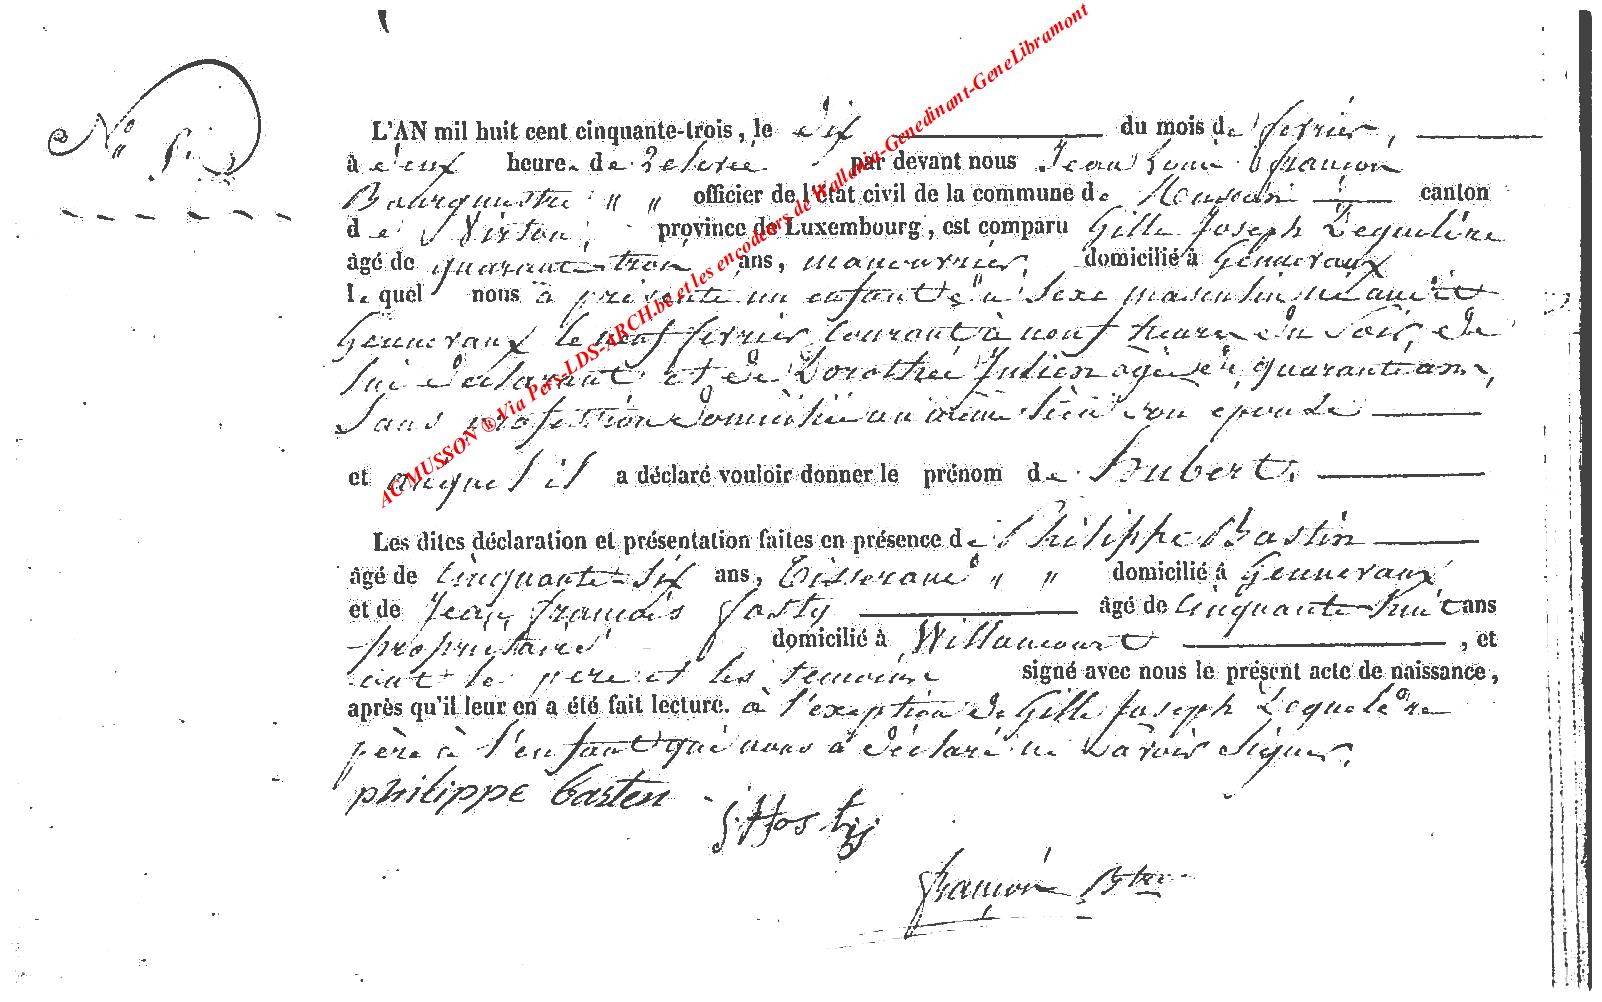 N°
L'AN mil huit cent cinquante-trois, le dix du mois de fevrier,
à deux heures de relevée par devant nous Jean Louis François
Bourgmestre " " officier de l'état civil de la commune de Musson canton
de Virton, province de Luxembourg, est comparu Gille Joseph Lequelène
âgé de quarante trois ans, manouvrier, domicilié à Gennevaux
lequel nous à présenté un enfant du sexe masculin né audit
Gennevaux le neuf fevrier courant à neuf heures du soir, de
lui déclarant et de Dorothée Julien agée de quarante ans,
sans profession domiciliée au même lieu son epouse
et auquel il a déclaré vouloir donner le prénom de Hubert.
Les dites déclaration et présentation faites en présence de Philippe Bastin
âgé de cinquante-six ans, Tisserand " " domicilié à Gennevaux
et de Jean François Hosty âgé de cinquante huit ans
propriétaire domicilié à Willancourt , et
ont le père et les temoins signé avec nous le présent acte de naissance,
après qu'il leur en a été fait lecture. à l'exeption de Gille Joseph Lequelène
père à l'enfant qui nous à déclaré ne savoir signer.
philippe basten
Hosty
François Bter
AC MUSSON ® Via Pers-LDS-ARCH.be et les encodeurs de Wallonia-Genedinant-GeneLibramont